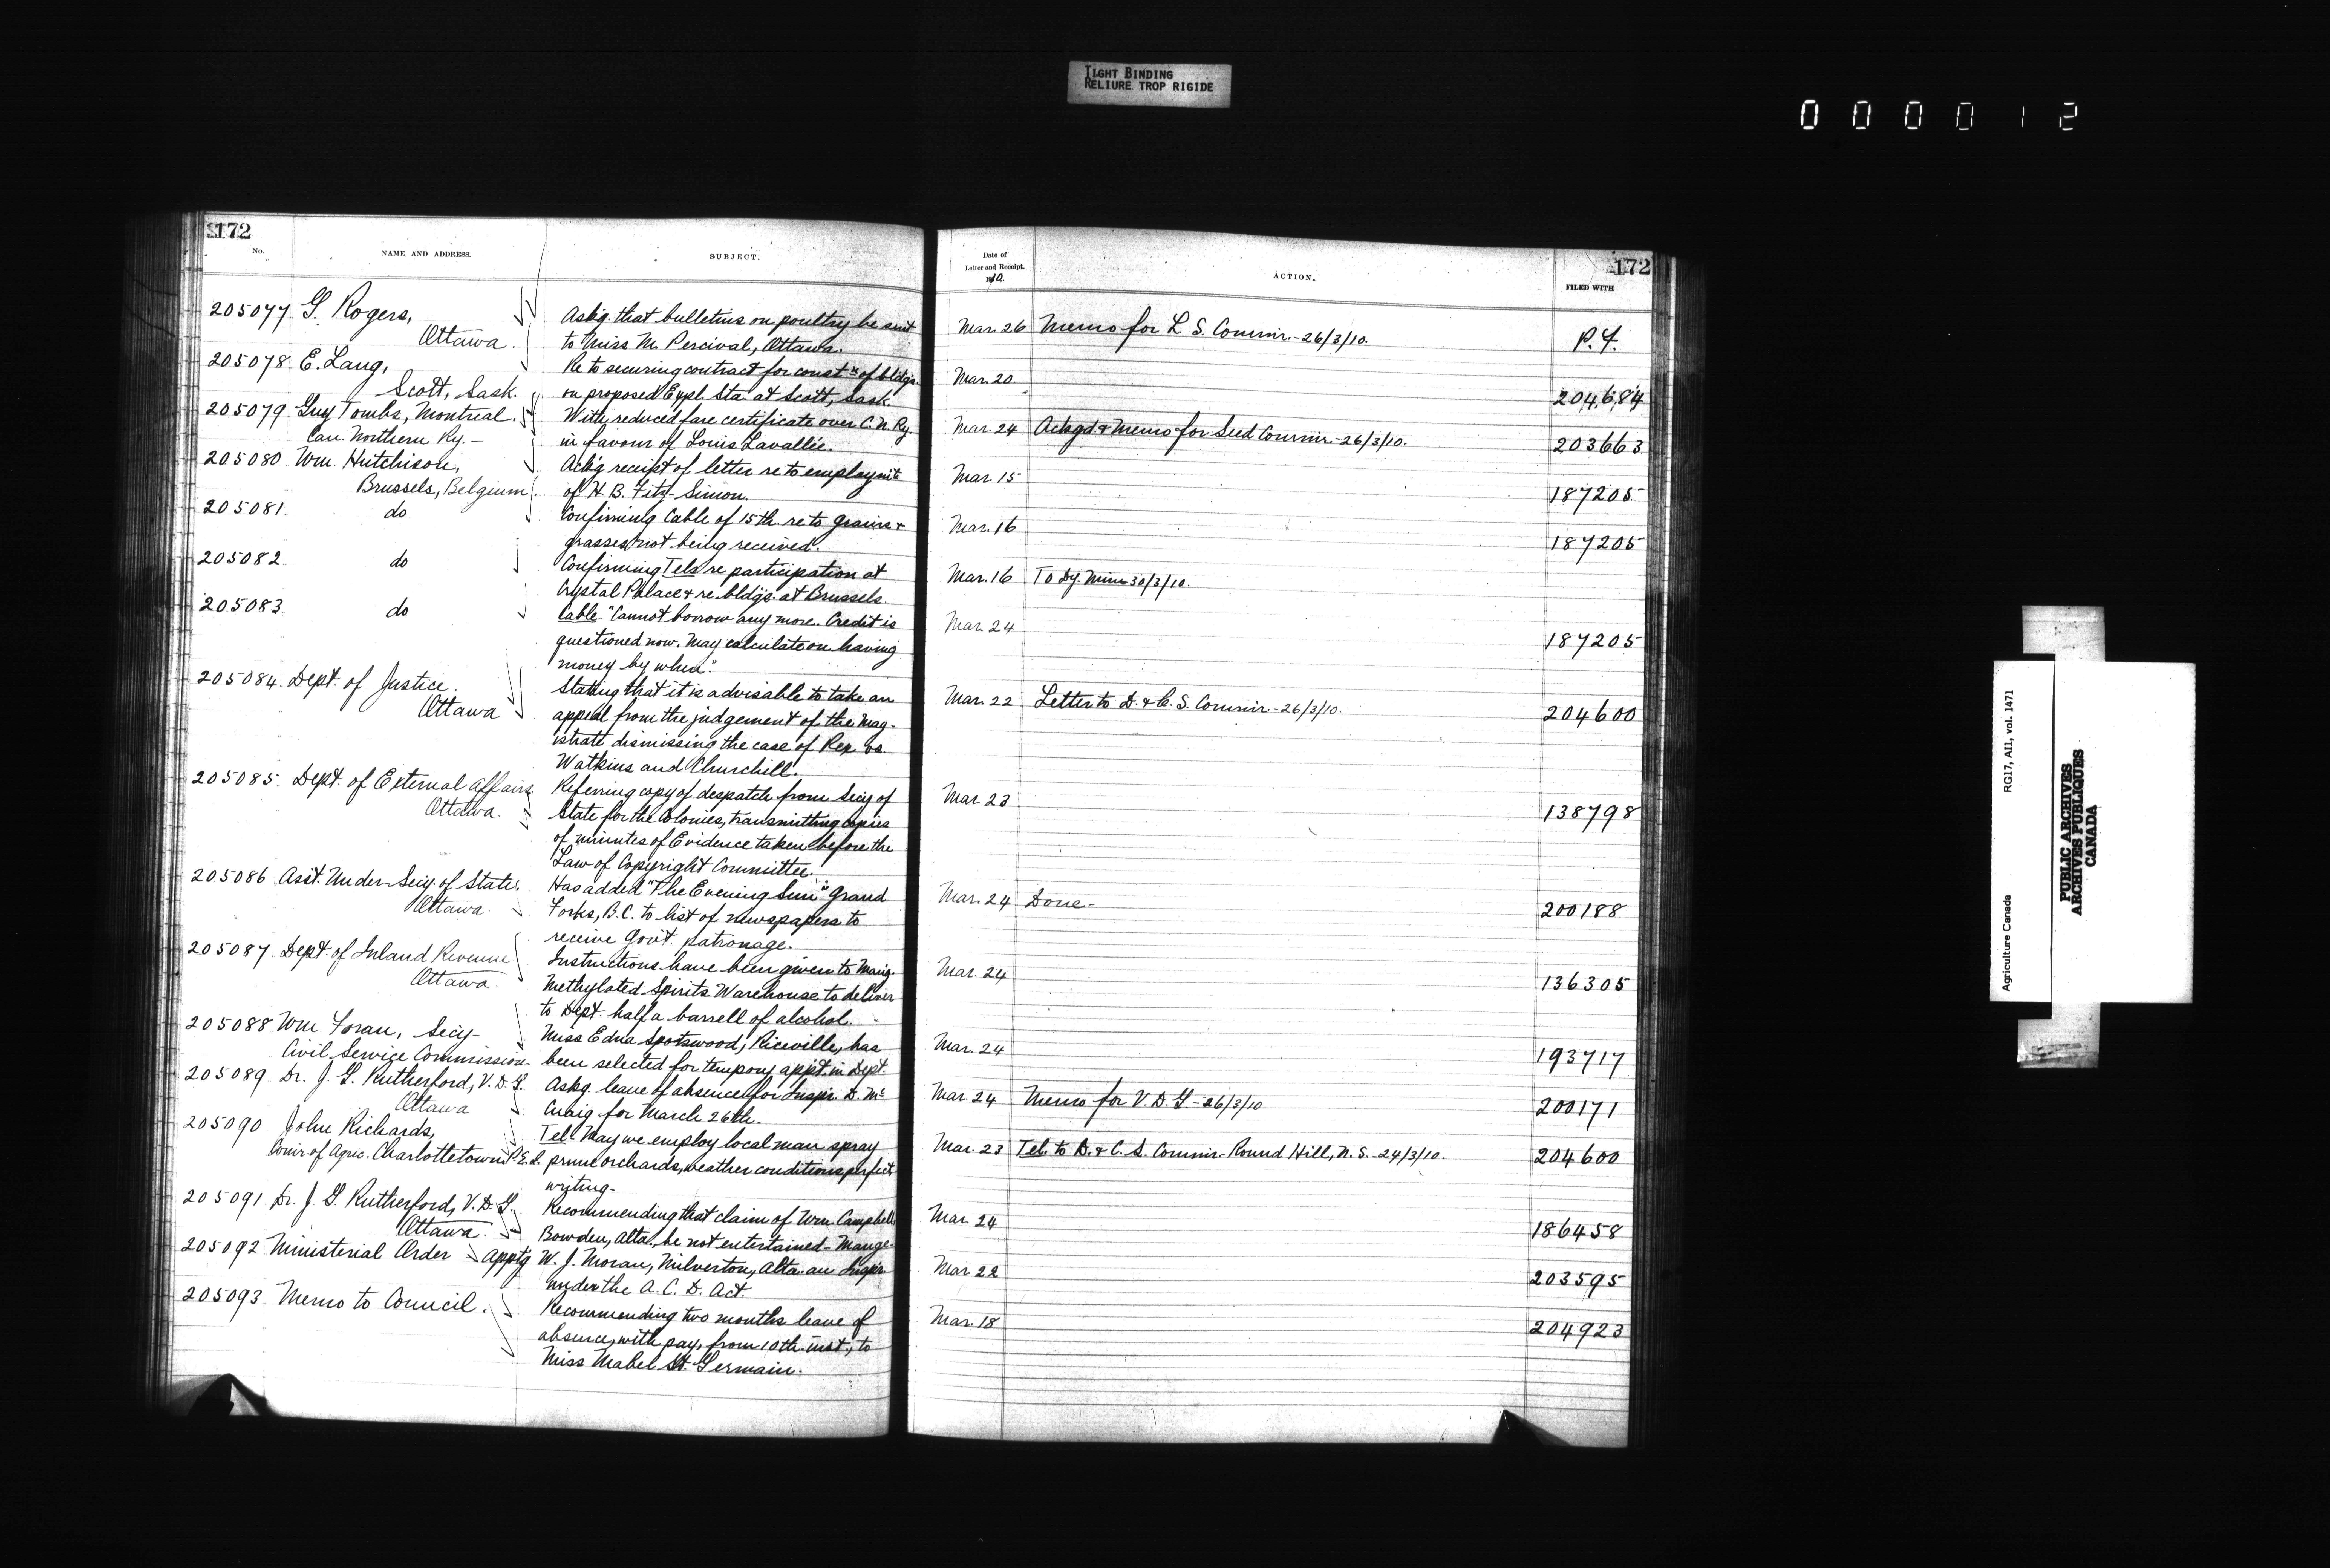 TIGHT BINDING
RELIURE TROP RIGIDE
000012
172
No.
NAME AND ADDRESS.
SUBJECT.
205077 G. Rogers,
Ottawa.
Askg. that bulletins on poultry be sent
to Miss M. Percival, Ottawa.
205078 E. Lang,
Scott, Sask.
Re to securing contract for constn of bldgs.
on proposed Expl. Sta. at Scott, Sask.
205079 Guy Tombs, Montreal.
Can. Northern Ry. -
With reduced fare certificate over C. N. Ry.
in favour of Louis Lavallée.
205080 Wm. Hutchison,
Brussels, Belgium
Ackg receipt of letter re to employmt
of H. B. Fitz-Simon.
205081 do
Confirming Cable of 15th. re to grains &
grasses not being received.
205082 do
Confirming Tels re participation at
Crystal Palace & re. bldgs. at Brussels.
205083 do
Cable - "Cannot borrow any more. Credit is
questioned now. May calculate on having
money by when."
205084 Dept. of Justice
Ottawa
Stating that it is advisable to take an
appeal from the judgement of the Mag-
istrate dismissing the case of Rex vs.
Watkins and Churchill.
205085 Dept. of External Affairs
Ottawa.
Referring copy of despatch from Secy of
State for the Colonies, transmitting copies
of minutes of Evidence taken before the
Law of Copyright Committee.
205086 Asst. Under-Secy. of State
Ottawa
Has added "The Evening Sun" Grand
Forks, B.C. to list of newspapers to
receive Govt. patronage.
205087 Dept. of Inland Revenue
Ottawa
Instructions have been given to Mang.
Methylated Spirits Warehouse to deliver
to Dept. half a barrell of alcohol.
205088 Wm. Foran, Secy-
Civil Service Commission-
Miss Edna Spotswood, Riceville, has
been selected for tempory appt. in Dept.
205089 Dr. J. G. Rutherford, V. D. G.
Ottawa
Askg. leave of absence for Inspr. D. Mc
Craig for March 26th.
205090 John Richards,
Comr of Agric. Charlottetown P.E.I.
Tel. May we employ local man spray
prune orchards, weather conditions perfect
writing-
205091 Dr. J. G. Rutherford, V. D. G.
Ottawa
Recommending that claim of Wm. Campbell
Bowden, Alta., be not entertained - Mange.
205092 Ministerial Order
apptg W. J. Moran, Milverton, Alta. an Inspr.
under the A. C. D. Act.
205093 Memo to Council.
Recommending two months leave of
absence, with pay, from 10th inst., to
Miss Mabel St. Germain.
172
Date of
Letter and Receipt.
1910.
ACTION.
FILED WITH
Mar. 26 Memo for L. S. Commr. - 26/3/10. P.F.
Mar. 20. 204,684
Mar 24 Ackgd & Memo for Seed Commr. - 26/3/10. 203663
Mar. 15 187205
Mar. 16 187205
Mar. 16 To Dy. Minr 30/3/10.
Mar. 24 187205
Mar. 22 Letter to D. & C. S. Commr - 26/3/10. 204600
Mar. 23 138798
Mar. 24 Done- 200188
Mar. 24 136305
Mar. 24 193717
Mar 24 Memo for V. D. G. - 26/3/10 200171
Mar. 23 Tel. to D. & C. S. Commr. Round Hill, N. S. - 24/3/10. 204600
Mar. 24 186458
Mar. 22 203595
Mar. 18 204923
Agriculture Canada
RG17, AII, vol. 1471
PUBLIC ARCHIVES
ARCHIVES PUBLIQUES
CANADA